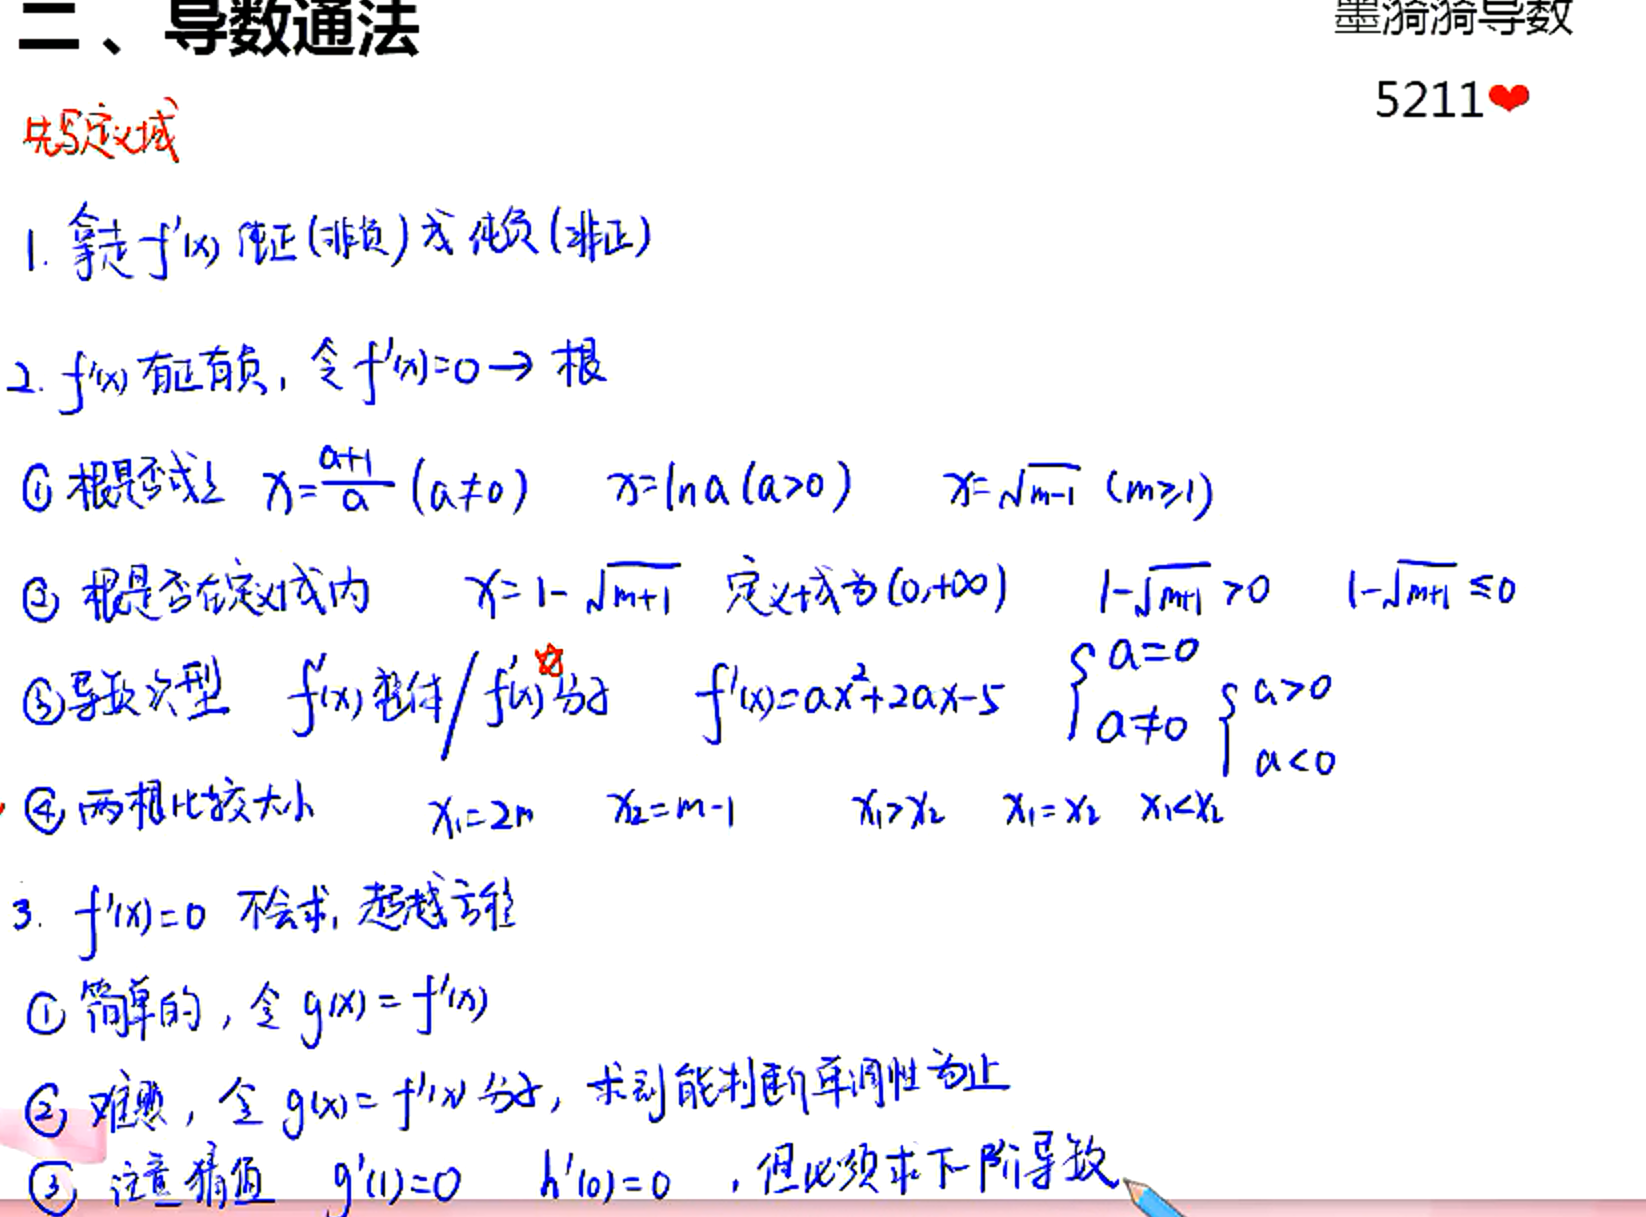 二、导数通法
墨漪漪导数
5211❤
先写定义域
1. 拿走f'(x)纯正(非负)或纯负(非正)
2. f'(x)有正有负，令f'(x)=0→根
① 根是否成立 x=\frac{a+1}{a} (a≠0) x=lna (a>0) x=√(m-1) (m≥1)
② 根是否在定义域内 x=1-√(m+1) 定义域为(0,+∞) 1-√(m+1)>0 1-√(m+1)≤0
③ 导数次型 f'(x)整体/f'(x)分子 ☆ f'(x)=ax²+2ax-5 { a=0 a≠0 { a>0 a<0
④ 两根比较大小 x₁=2m x₂=m-1 x₁>x₂ x₁=x₂ x₁<x₂
3. f'(x)=0 不会求，超越方程
① 简单的，令g(x)=f'(x)
② 难题，令g(x)=f'(x)分子，求到能判断单调性为止
③ 注意猜值 g'(1)=0 h'(0)=0，但必须求下一阶导数